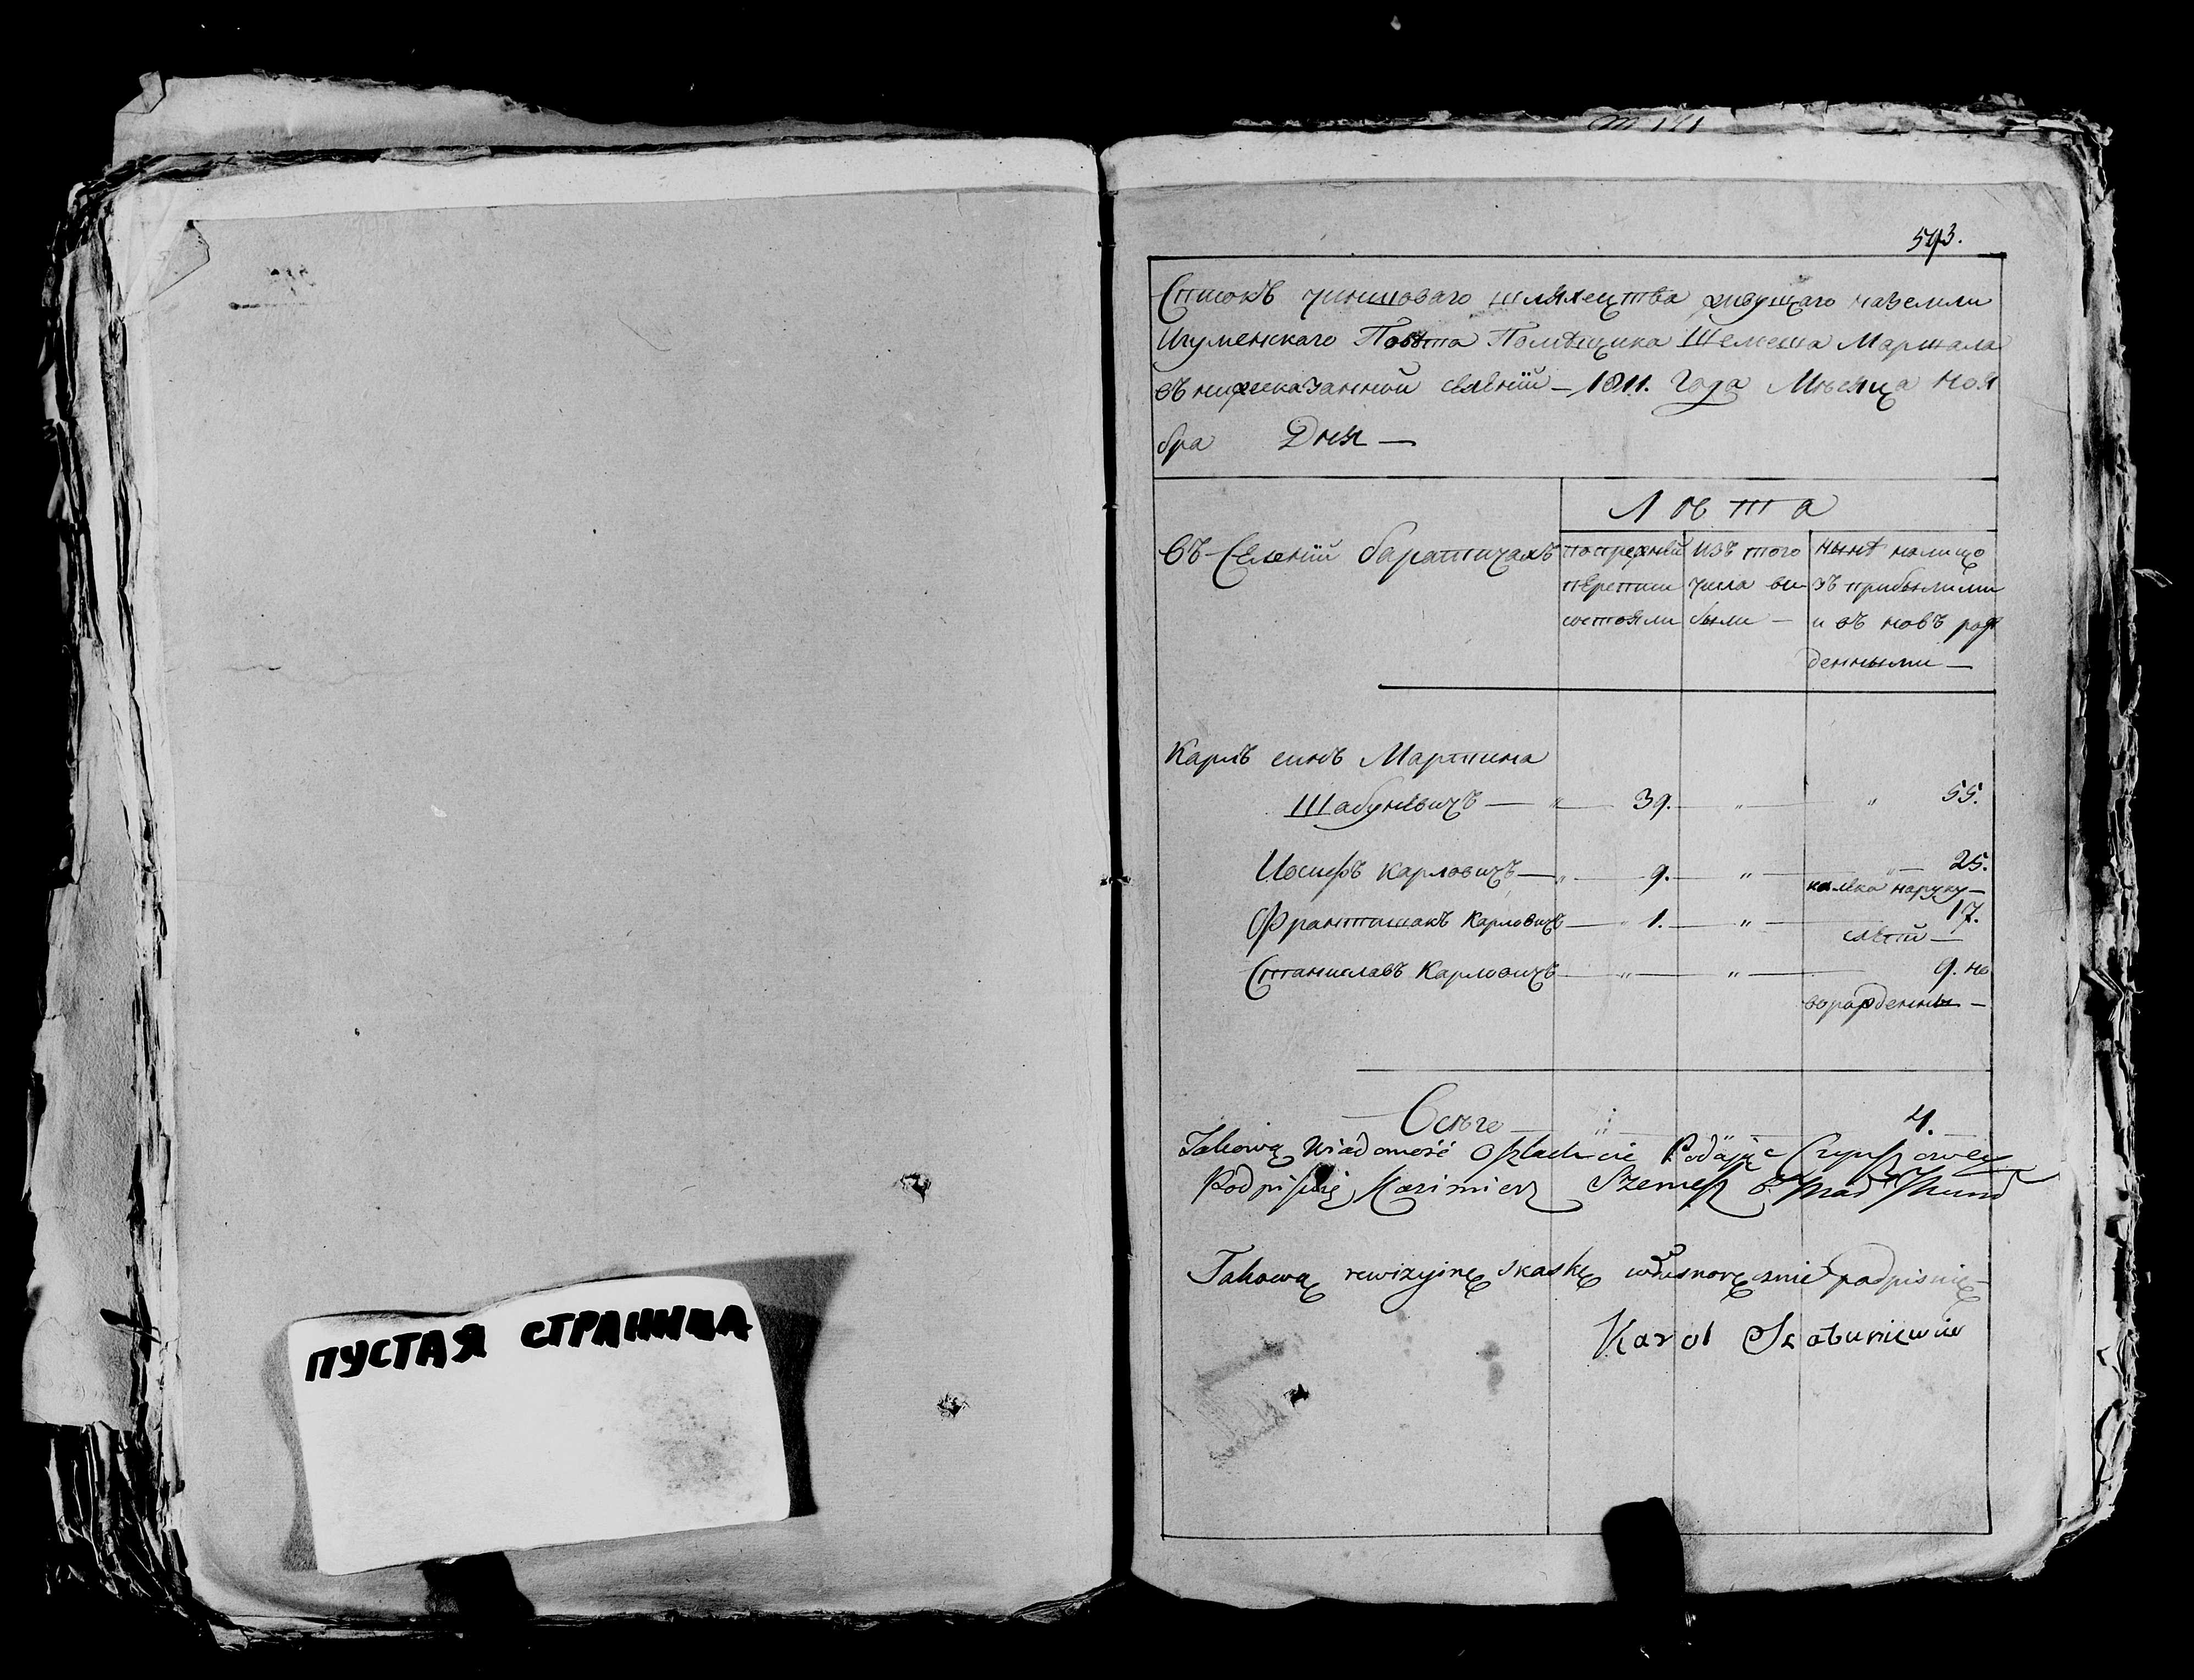 ПУСТАЯ СТРАНИЦА
593.
Списокъ чиншоваго шляхецтва живущаго наземли
Игуменскаго Повѣта Помѣщика Шемеша Маршала
въ нижеказанной селѣнїи — 1811. Года Мѣсяца Ноя
бра Дня —
Лѣта
въ Селенїи баратичахъ
попрежнѣй
перепии
состояли
Изъ того
числа вы-
были —
Нынѣ налицо
зъ прибылими
и зъ новъ рож
денными —
Карлъ синъ Мартина
Шабунѣвичъ — " — 39. — " — " 55.
Иосифъ Карловичъ — " — 9. — " — " — 25.
калѣка наруку —
Франтишакъ Карловичъ — " 1. — " — 17.
слѣпий —
Станиславъ Карловичъ — " — " — 9. но
ворожденны —
Всѣго — " 4. —
Takową Wiadomość o Szlachcie Podając Czynszowey
Podpisuię Kazimierz Szemesz
Takową rewizyiną skaskę własnoręcznie podpisuię —
Karol Szabuniewicz